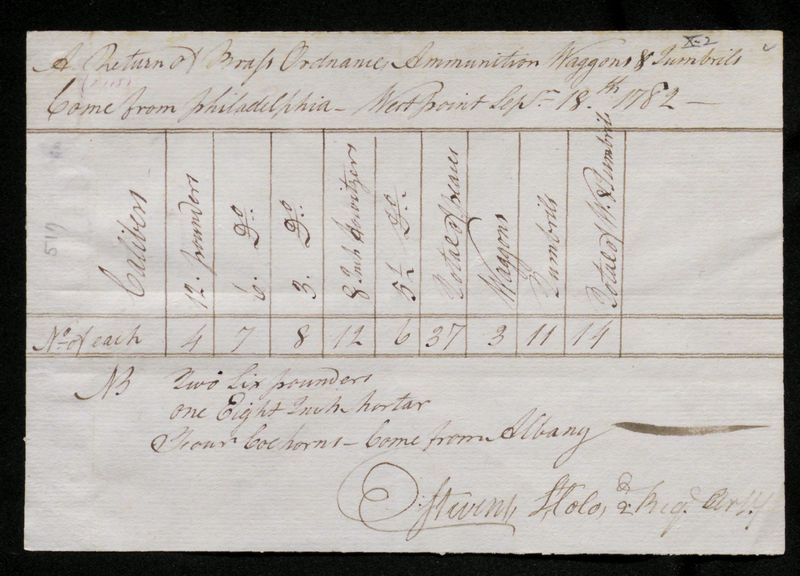 X-2
A Return of Brass Ordnance, Ammunition Waggons & Tumbrils
Come from Philadelphia – West point Sepr. 18.th 1782 –
519
Calibers
12. pounders
6. Do..
3. Do..
8 Inch Howitzers
5 1/2 Do..
Total of peaces
Waggons
Tumbrils
Total of W. & Tumbrils
No. of each 4 7 8 12 6 37 3 11 14
NB Two Six pounders
one Eight Inch Mortar
Four Coehorns – Come from Albany
E Stevens Lt Colo, 2d Regt. Arty